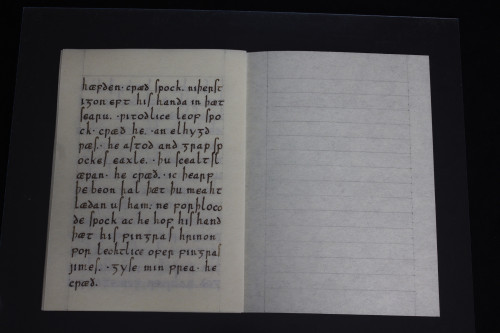 hæfden. cƿæð spock. niþerst
iȝon eft his handa in þæt
searu. ƿitodlice leof spo
ck. cƿæð he. an elhyȝd
ƿæs. he astod and ȝrap sp
ockes eaxle. þu scealt sl
æpan. he cƿæð. ic þearf
þe beon hal þæt þu meaht
lædan us ham. ne forþloco
de spock ac he hof his hand
þæt his finȝras hrinon
for leohtlice ofer finȝras
jimes. ȝyse min frea. he
cƿæð.